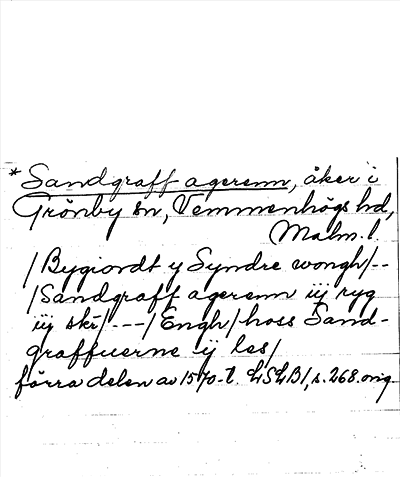 * Sandgraff agerenn, åker i
Grönby sn, Vemmenhögs hd,
Malm. l.
/Bygiordt y Syndre wongh/--
/Sandgraff agerenn iij ryg
iij skr/----/Engh/hoss Sand-
graffuerne ij les/
förra delen av 1570-t. LSLB1, s. 268. orig.